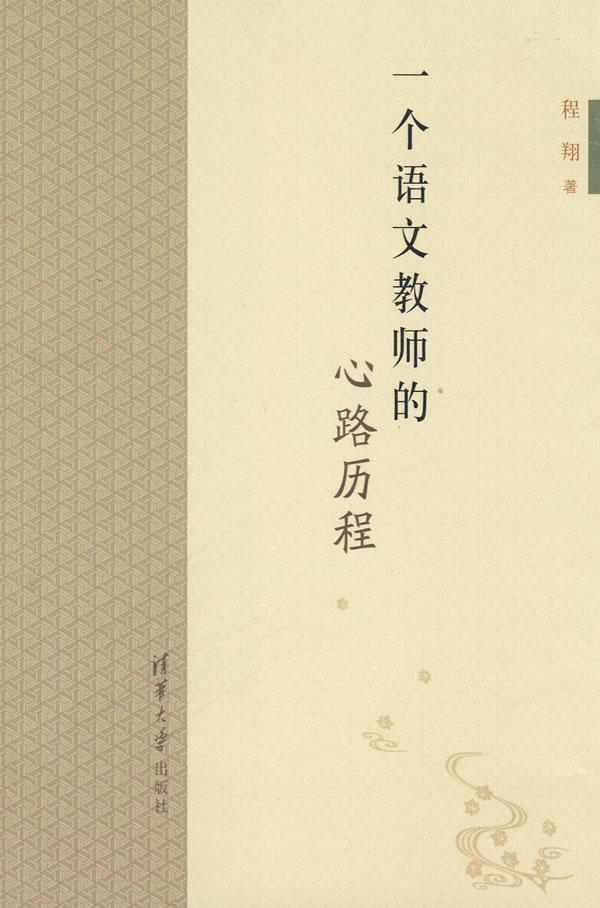 程翔 著
一个语文教师的
心路历程
清华大学出版社